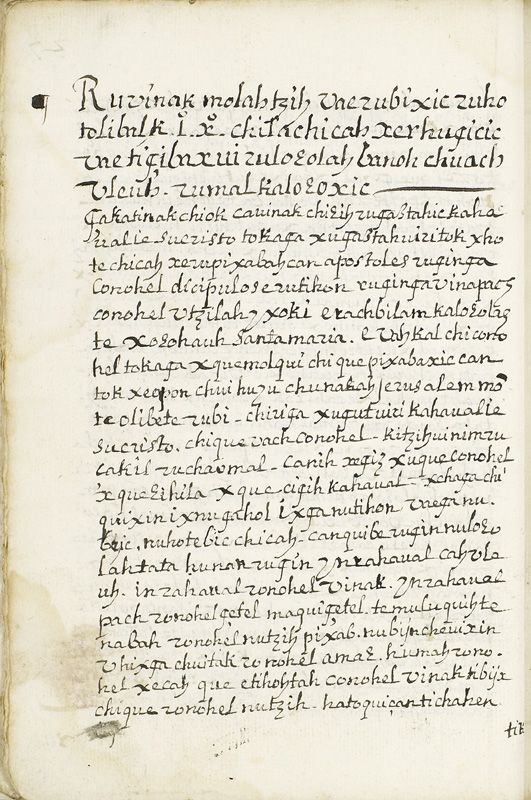 Ruvinak molahtzih vae rubixic ruho
tolibalk. I. X. chisachicah xerhugicic
vae tigibaxvi ruloɛolah banoh chuach
Vleuh. rumal kaloɛoxic
Çakatinakchiok cavinak chiɛih rugastahic kaha
val iesucristo tokaga xugastahviritok xho
te chicah xerupixabahcan apostoles ruginga
Conohel dicipulose rutihon ruginga vinapach
conohel vtzilah xoki erachbilam kaloɛolag
te xoɛohauh santa maria. e vahkal chi cono
hel tokaga xquemolqui chi que pixabaxic can
tok xeopon chui huyu chunakah Jerusalem mõ
te olibete rubi - chiriga xugutuiri kahaual ie
sucristo. chique vach conohel - kitzihui nimru
cakil ruchaomal - canih xegiz xuque conohel
xqueɛihila xque cigih kahaual - txchaga chi
quixin ixnugahol ixganutihon vaeganu.
bric. nuhotebic chicah - canquibe rugin nuloɛo
lahtata hunan rugin ynrahaual cah vle
uh. inrahaual ronohel vinak. ynrahaual
pach ronohel getel maquigetel. temuluquihte
nabah ronohel nutzih pixab. nubijnchewixin
vhixga chuitak ronohel amaɛ. humah rono.
hel xecah que etihohtah conohel vinak tibijx
chique ronohel nutzih - hatoquiçantichahen
tik